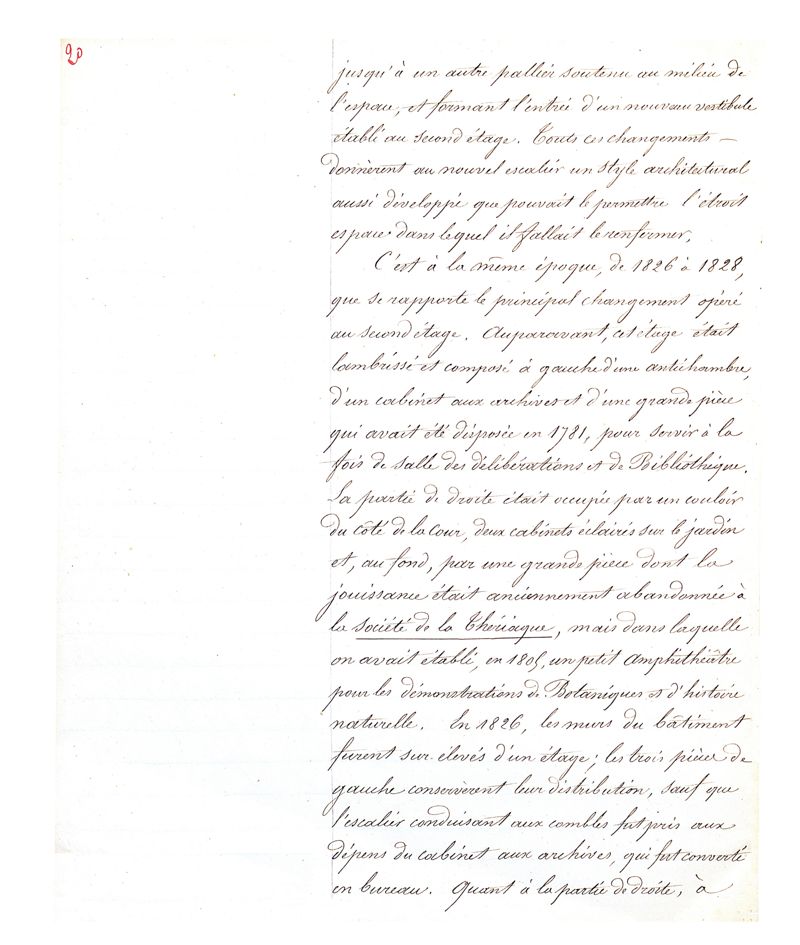 20
jusqu'à un autre pallier soutenu au milieu de
l'espace, et formant l'entrée d'un nouveau vestibule
établi au second étage. Touts ces changements —
donnèrent au nouvel escalier un style architectural
aussi développé que pouvait le permettre l'étroit
espace dans lequel il fallait le renfermer.
C'est à la même époque, de 1826 à 1828,
que se rapporte le principal changement opéré
au second étage. Auparavant, cet étage était
lambrissé et composé à gauche d'une antichambre,
d'un cabinet aux archives et d'une grande pièce
qui avait été disposée en 1781, pour servir à la
fois de salle des délibérations et de Bibliothèque.
La partie de droite était occupée par un couloir
du côté de la cour, deux cabinets éclairés sur le jardin
et, au fond, par une grande pièce dont la
jouissance était anciennement abandonnée à
la Société de la Thériaque, mais dans laquelle
on avait établi, en 1805, un petit amphithéâtre
pour les démonstrations de Botaniques et d'histoire
naturelle. En 1826, les murs du bâtiment
furent sur élevés d'un étage; les trois pièces de
gauche conservèrent leur distribution, sauf que
l'escalier conduisant aux combles fut pris aux
dépens du cabinet aux archives, qui fut converti
en bureau. Quant à la partie de droite, à